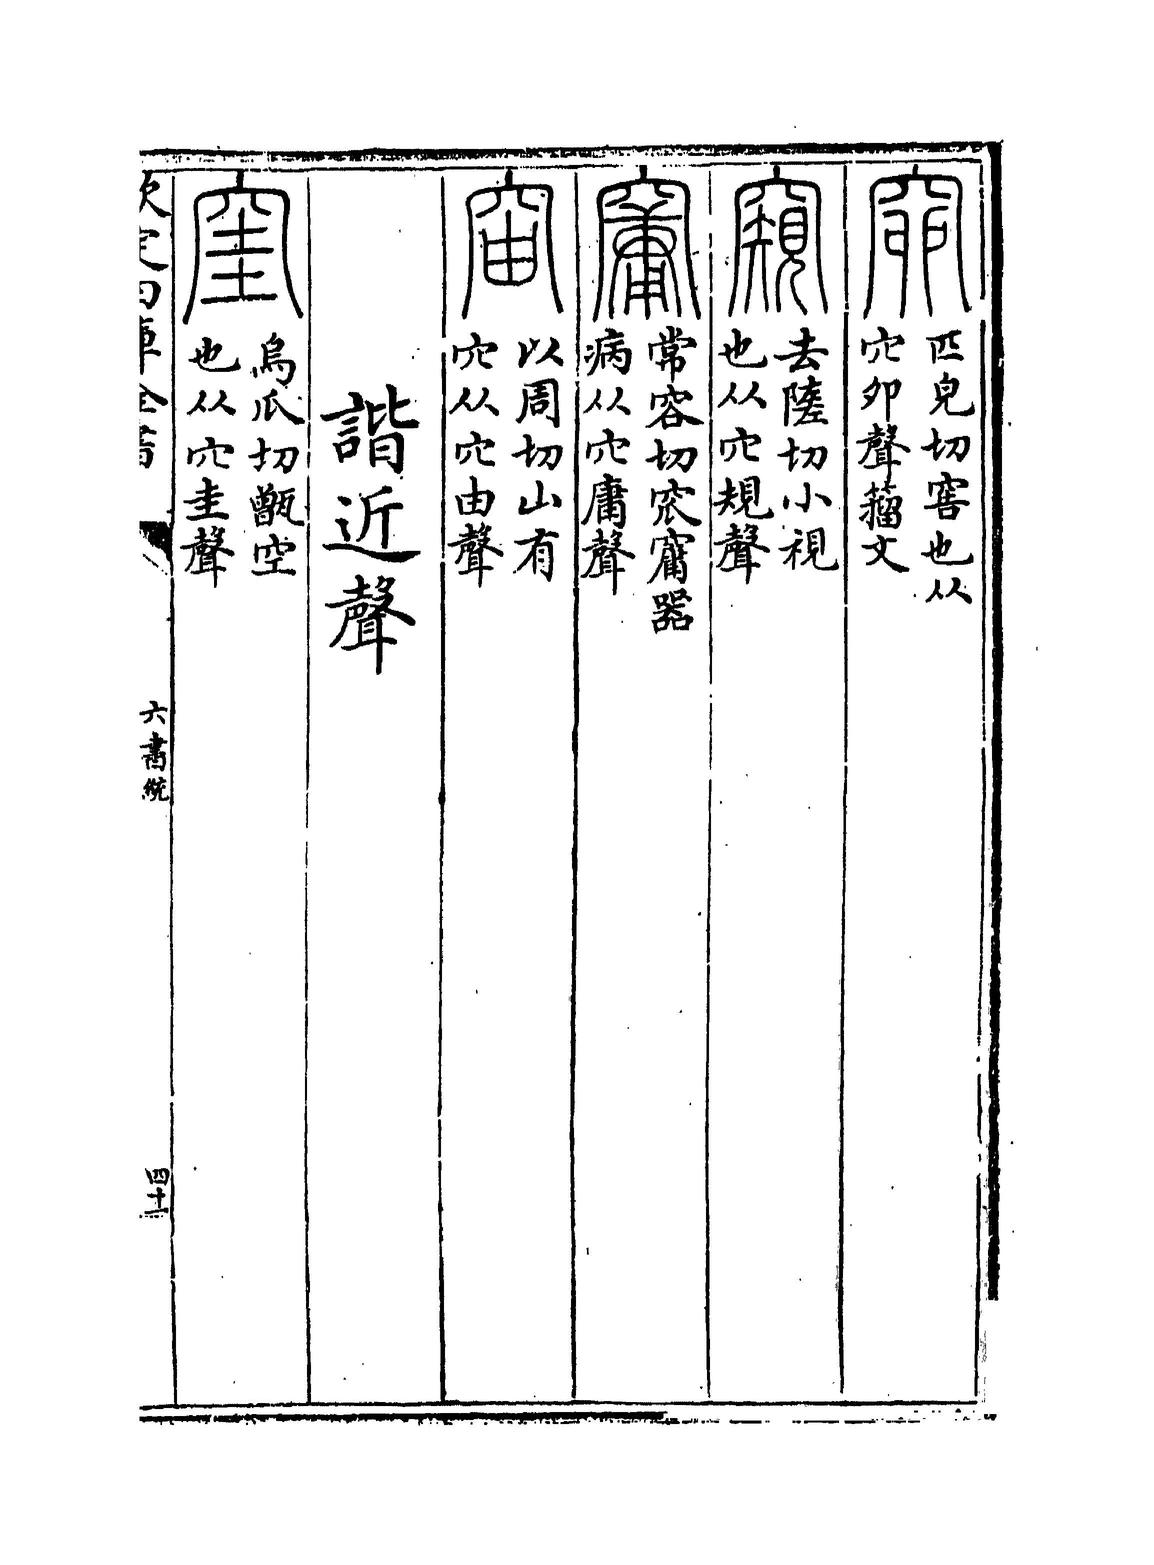 窌
匹皃切窖也从
穴卯聲籀文
窺
去隨切小視
也从穴規聲
𥨍
常容切窊𥨍器
病从穴庸聲
宙
以周切山有
穴从穴由聲
諧近聲
窐
烏瓜切甑空
也从穴圭聲
欽定四庫全書
六書統
四十一